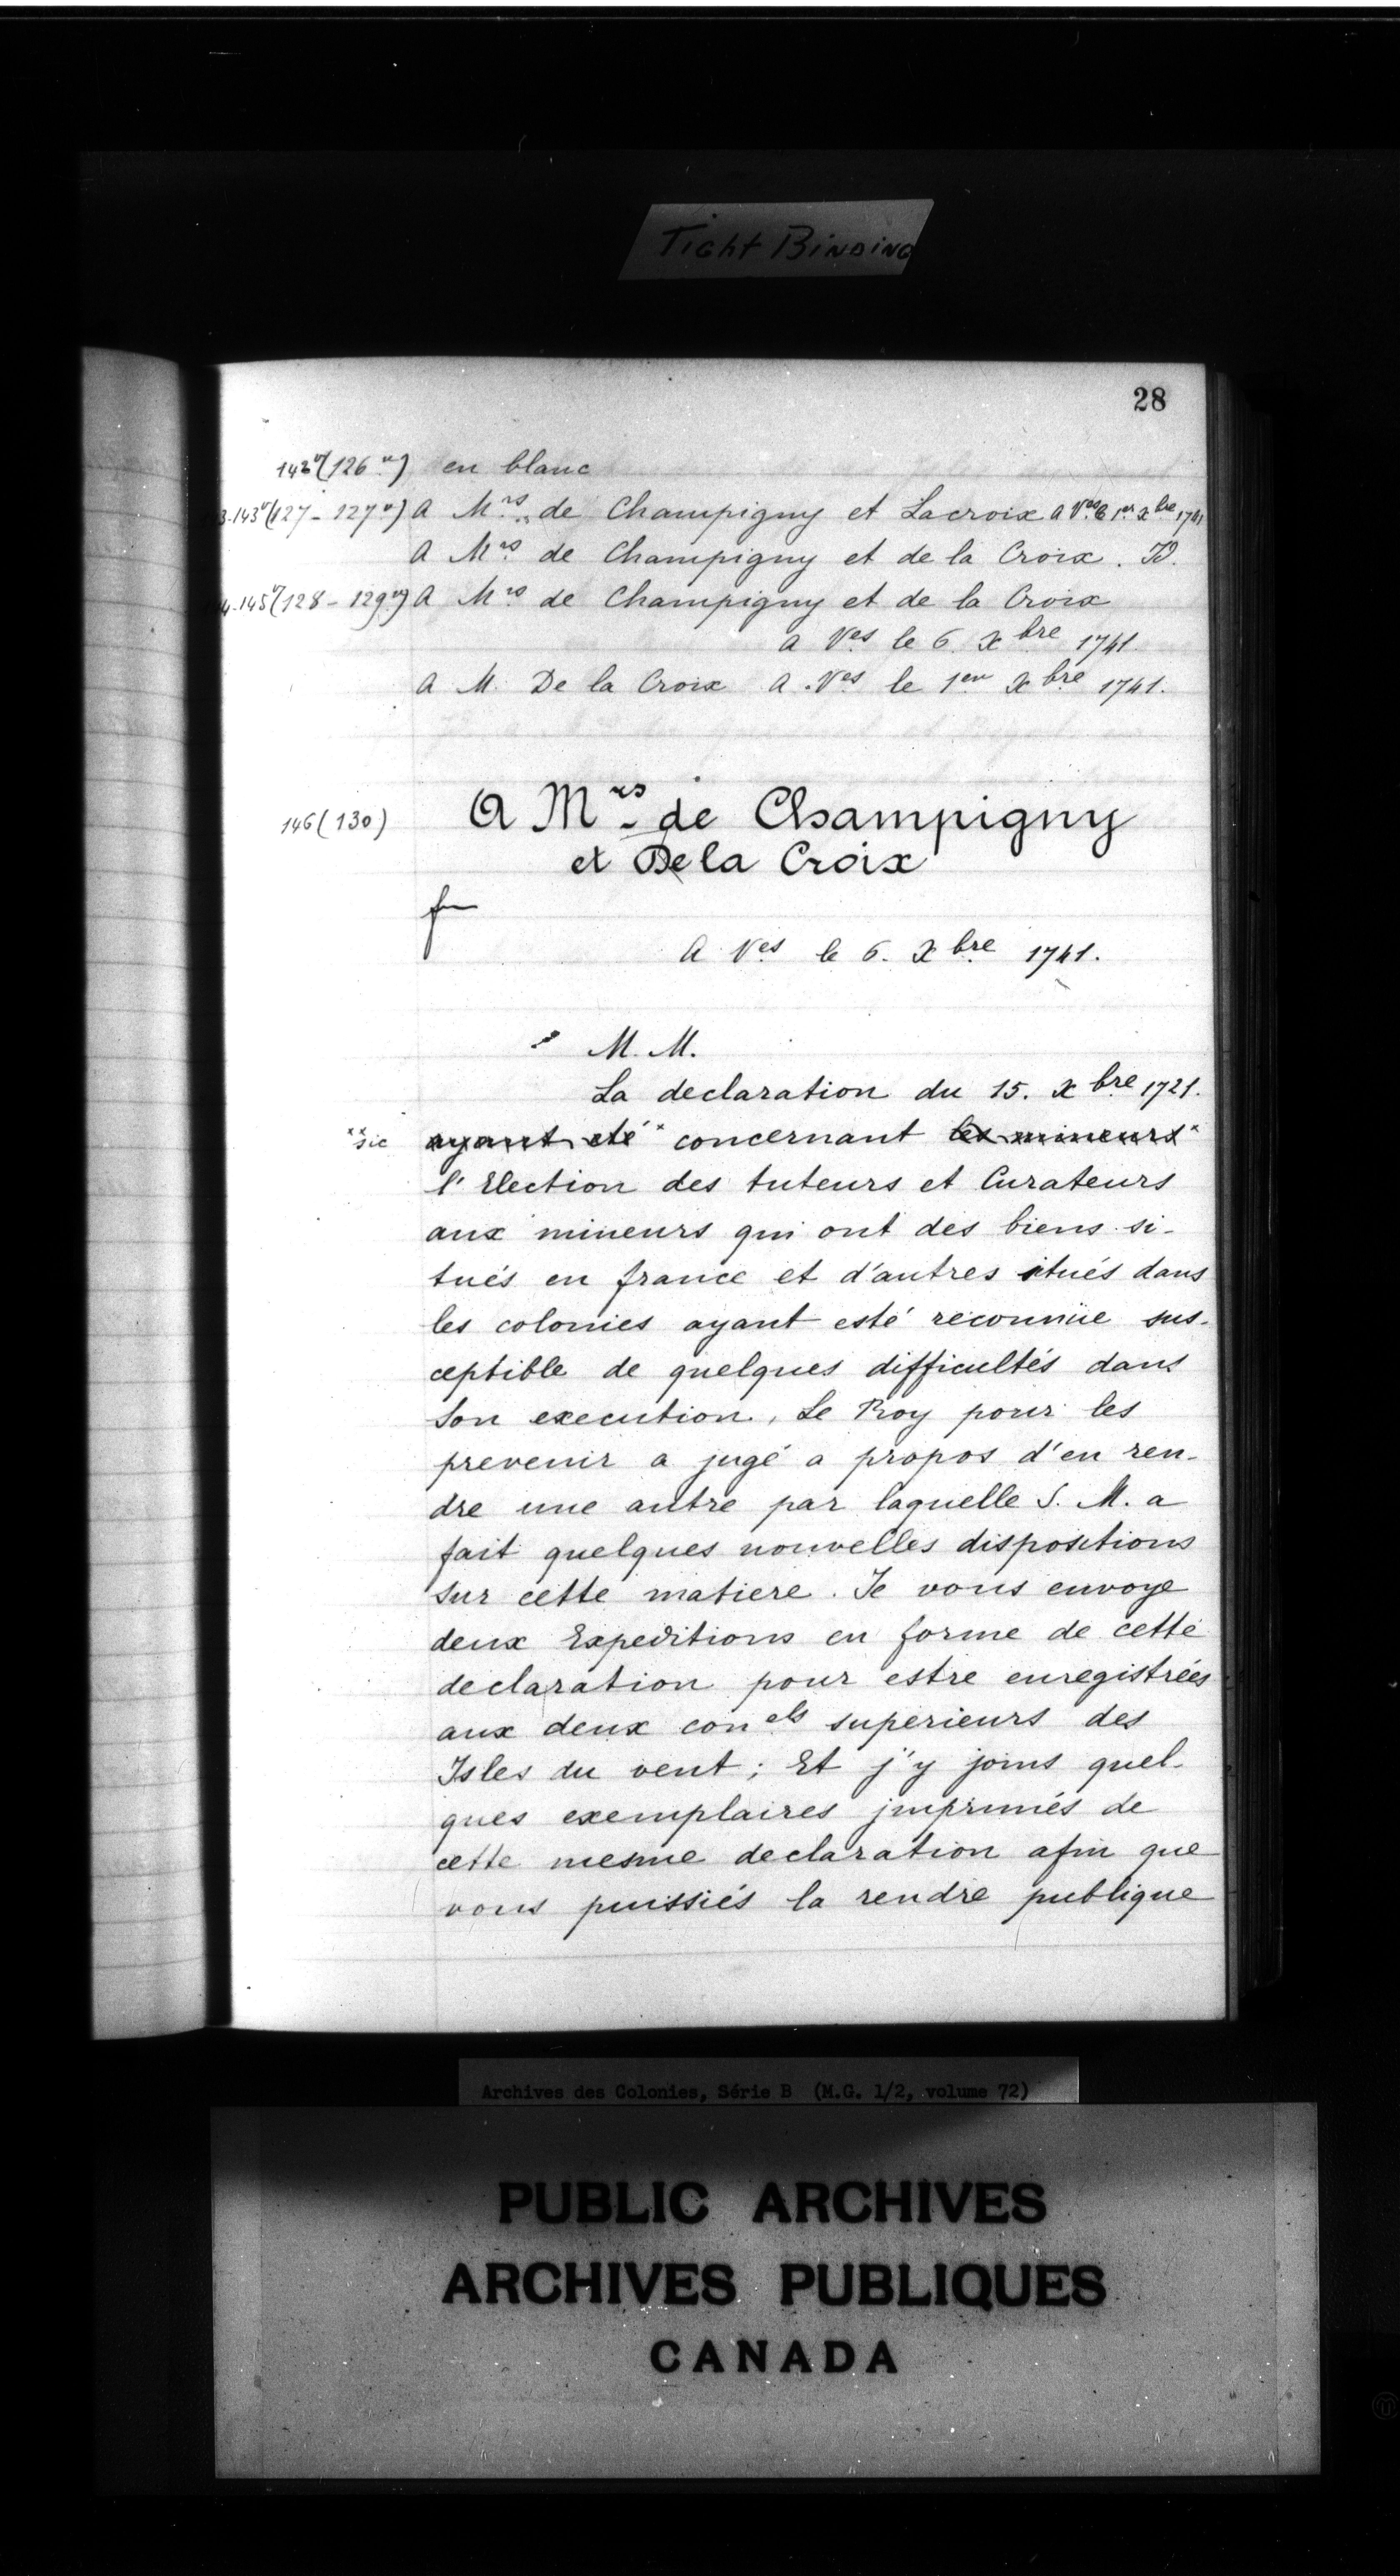 Tight Binding
28
142v(126vo) en blanc
3.143v(127-127vo) A Mrs de Champigny et Lacroix a Ves le 1er xbre 1741
A Mrs de Champigny et de la Croix. Id.
4.145v(128-129vo) A Mrs de Champigny et de la Croix
a Ves le 6 xbre 1741.
A M. De la Croix A Ves le 1er Xbre 1741.
146 (130) A Mrs de Champigny
et De la Croix
A Ves le 6. Xbre 1741.
M. M.
La declaration du 15. xbre 1721.
xx sic ayant eté x concernant les mineurs x
l'Election des tuteurs et Curateurs
aux mineurs qui ont des biens si-
tués en france et d'autres itués dans
les colonies ayant esté reconnüe sus-
ceptible de quelques difficultés dans
Son execution, Le Roy pour les
prevenir a jugé a propos d'en ren-
dre une autre par laquelle S. M. a
fait quelques nouvelles dispositions
Sur cette matiere. Je vous envoye
deux Expeditions en forme de cette
declaration pour estre enregistrées
aux deux conels superieurs des
Isles du vent; Et j'y joins quel-
ques exemplaires jmprimés de
cette mesme declaration afin que
vous puissiés la rendre publique
Archives des Colonies, Série B (M.G. 1/2, volume 72)
PUBLIC ARCHIVES
ARCHIVES PUBLIQUES
CANADA